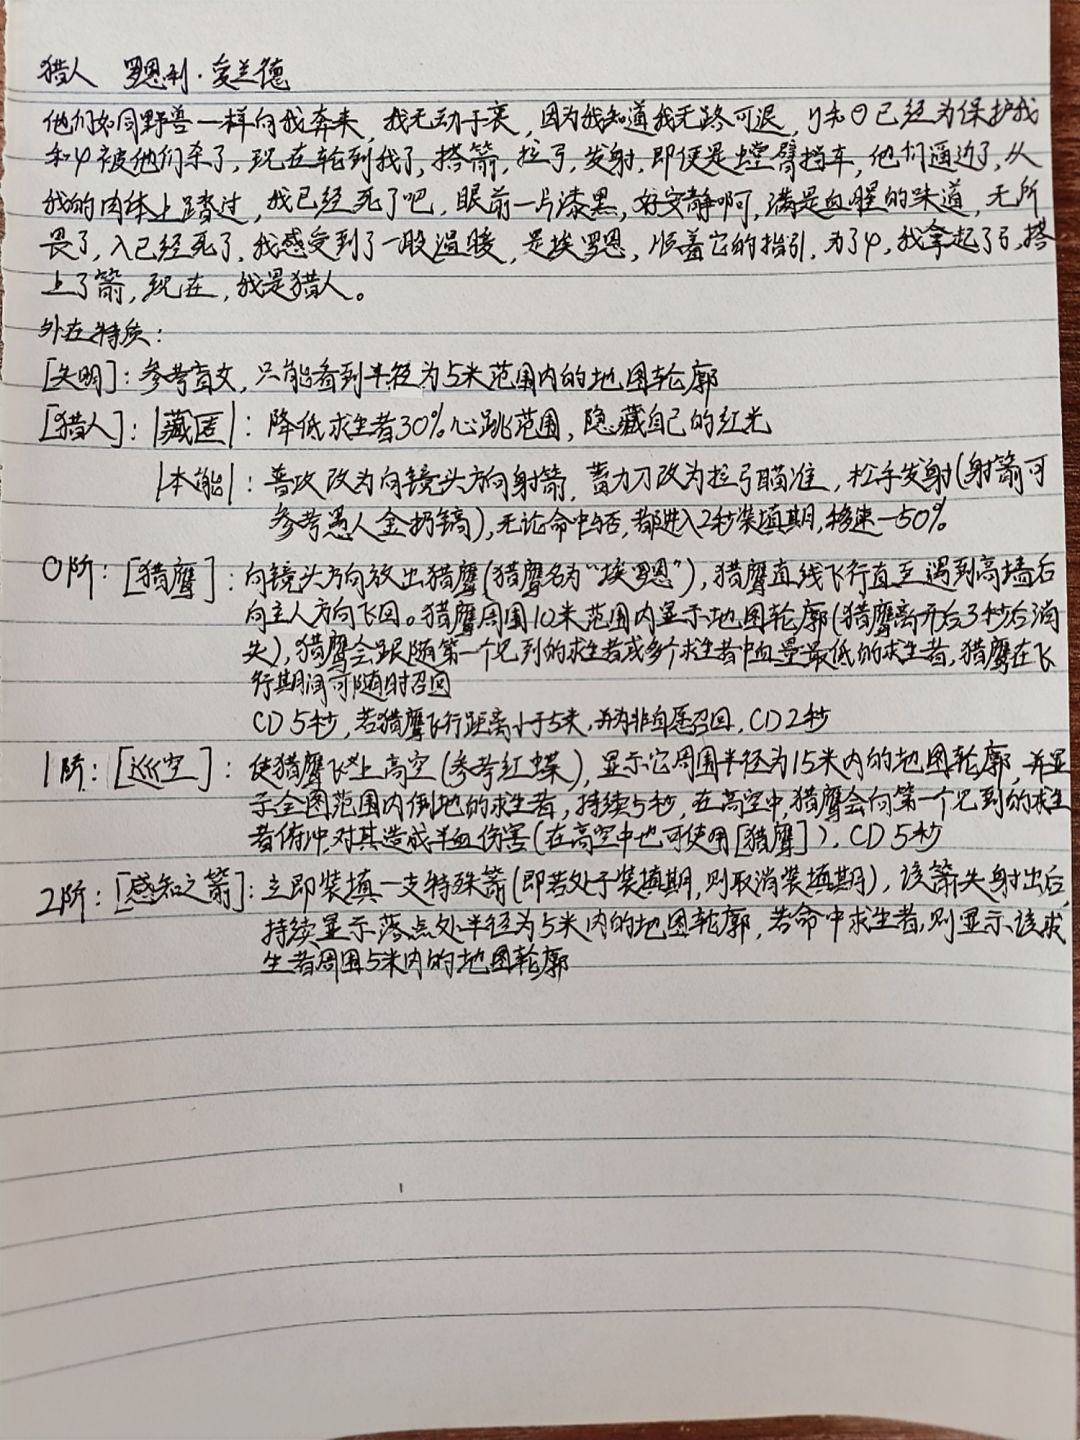 猎人 罗恩利·爱兰德
他们如同野兽一样向我奔来，我无动于衷，因为我知道我无路可退，y和θ已经为保护我
和φ被他们杀了，现在轮到我了，搭箭，拉弓，发射，即便是螳臂挡车，他们逼近了，从
我的肉体上踏过，我已经死了吧，眼前一片漆黑，好安静啊，满是血腥的味道，无所
畏了，入已经死了，我感受到了一股温暖，是埃罗恩，顺着它的指引，为了φ，我拿起了弓，搭
上了箭，现在，我是猎人。
外在特质：
[失明]：参考盲女，只能看到半径为5米范围内的地图轮廓
[猎人]：|藏匿|：降低求生者30%心跳范围，隐藏自己的红光
|本能|：普攻改为向镜头方向射箭，蓄力刀改为拉弓瞄准，松手发射(射箭可
参考愚人金扔镐)，无论命中与否，都进入2秒装填期，移速-50%
0阶：[猎鹰]：向镜头方向放出猎鹰(猎鹰名为“埃罗恩”)，猎鹰直线飞行直至遇到高墙后
向主人方向飞回。猎鹰周围10米范围内显示地图轮廓(猎鹰离开后3秒后消
失)，猎鹰会跟随第一个见到的求生者或多个求生者中血量最低的求生者，猎鹰在飞
行期间可随时召回
CD5秒，若猎鹰飞行距离小于5米，并为非自愿召回，CD2秒
1阶：[巡空]：使猎鹰飞上高空(参考红蝶)，显示它周围半径为15米内的地图轮廓，并显
示全图范围内倒地的求生者，持续5秒，在高空中，猎鹰会向第一个见到的求生
者俯冲，对其造成半血伤害(在高空中也可使用[猎鹰])，CD5秒
2阶：[感知之箭]：立即装填一支特殊箭(即若处于装填期，则取消装填期)，该箭矢射出后，
持续显示落点处半径为5米内的地图轮廓，若命中求生者，则显示该求
生者周围5米内的地图轮廓